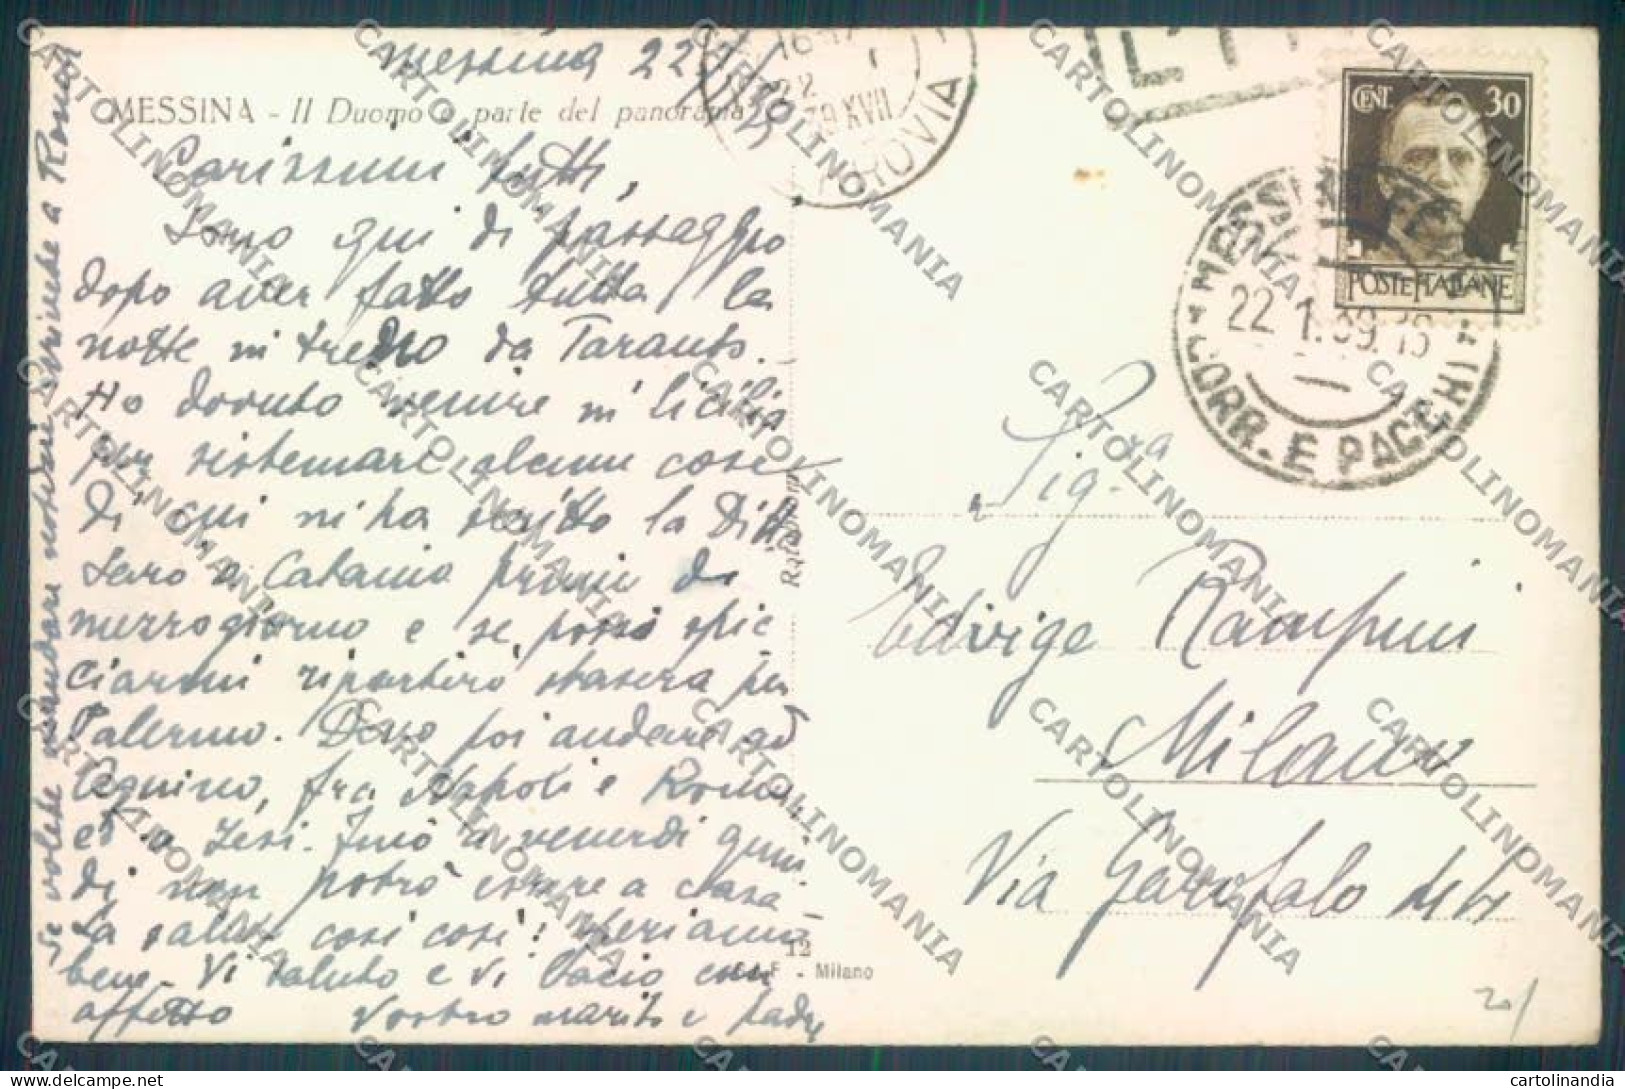 Messina 22/1/39
MESSINA - Il Duomo e parte del panorama
Carissimi tutti,
Sono qui di passaggio
dopo aver fatto tutta la
notte in treno da Taranto.
Ho dovuto venire in Sicilia
per sistemare alcune cose
di cui mi ha scritto la Ditta
Sarò a Catania prima di
mezzogiorno e se posso spic
ciarmi ripartirò stasera per
Palermo. Devo poi andare ad
Aquino, fra Napoli e Roma,
ed a Jesi. Fino a venerdì quin
di non potrò essere a casa
La salute così così! Speriamo
bene. Vi saluto e vi bacio con
affetto Vostro marito e padre
Se volete mandare notizie scrivete a Roma
16-17
22 1
39 XVII
FERROVIA
CENT. 30
POSTE ITALIANE
MESSINA
22.1.39.
CORR. E PACCHI
Sig.ra
Edvige Rampini
Milano
Via Garofalo
12
Milano
20/
CARTOLINOMANIA
cartolinandia